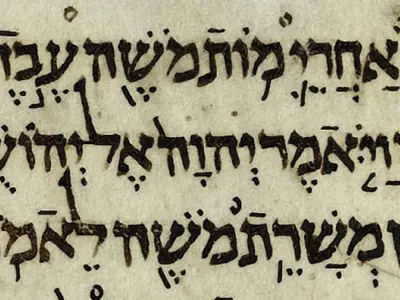 אַחֲרֵי מוֹת מֹשֶׁה עֶבֶד
וַיֹּאמֶר יְהוָה אֶל־יְהוֹשֻׁ
ן מְשָׁרֵת מֹשֶׁה לֵאמֹ